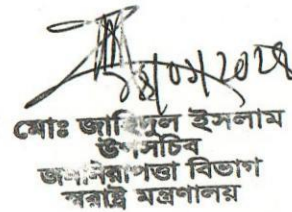 মোঃ জাহিদুল ইসলাম
উপসচিব
জননিরাপত্তা বিভাগ
স্বরাষ্ট্র মন্ত্রণালয়